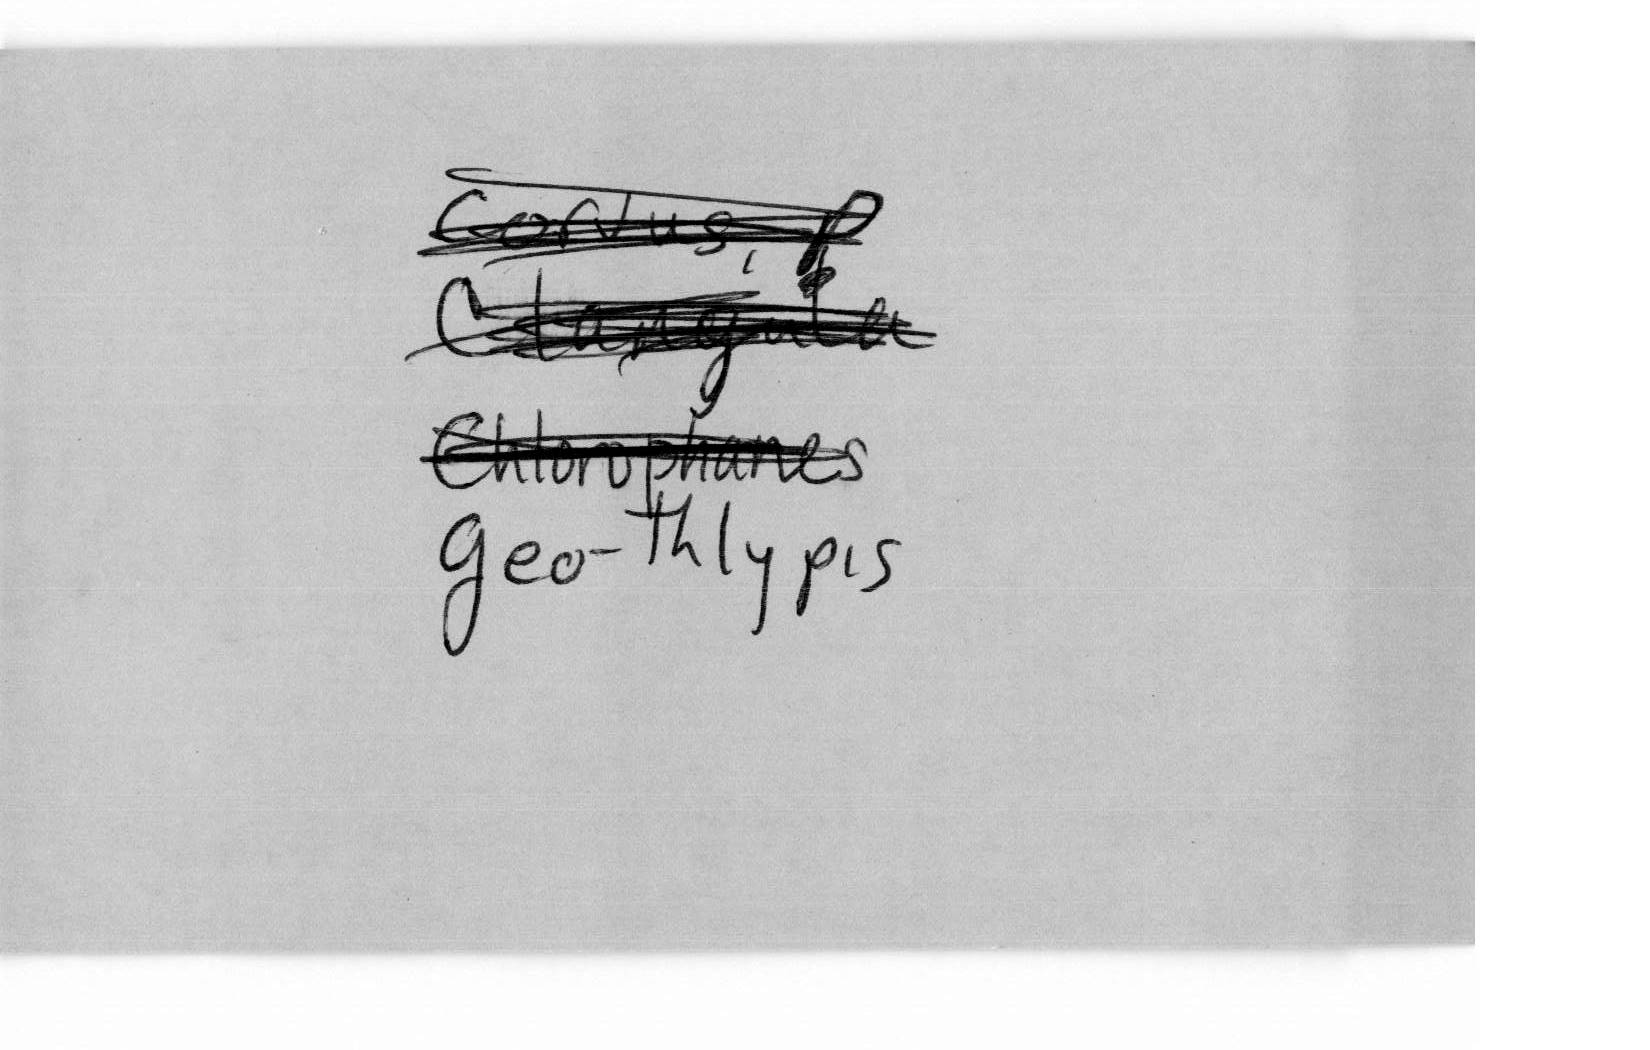 Corvus,
Clangula
Chlorophanes
geo-Thlypis